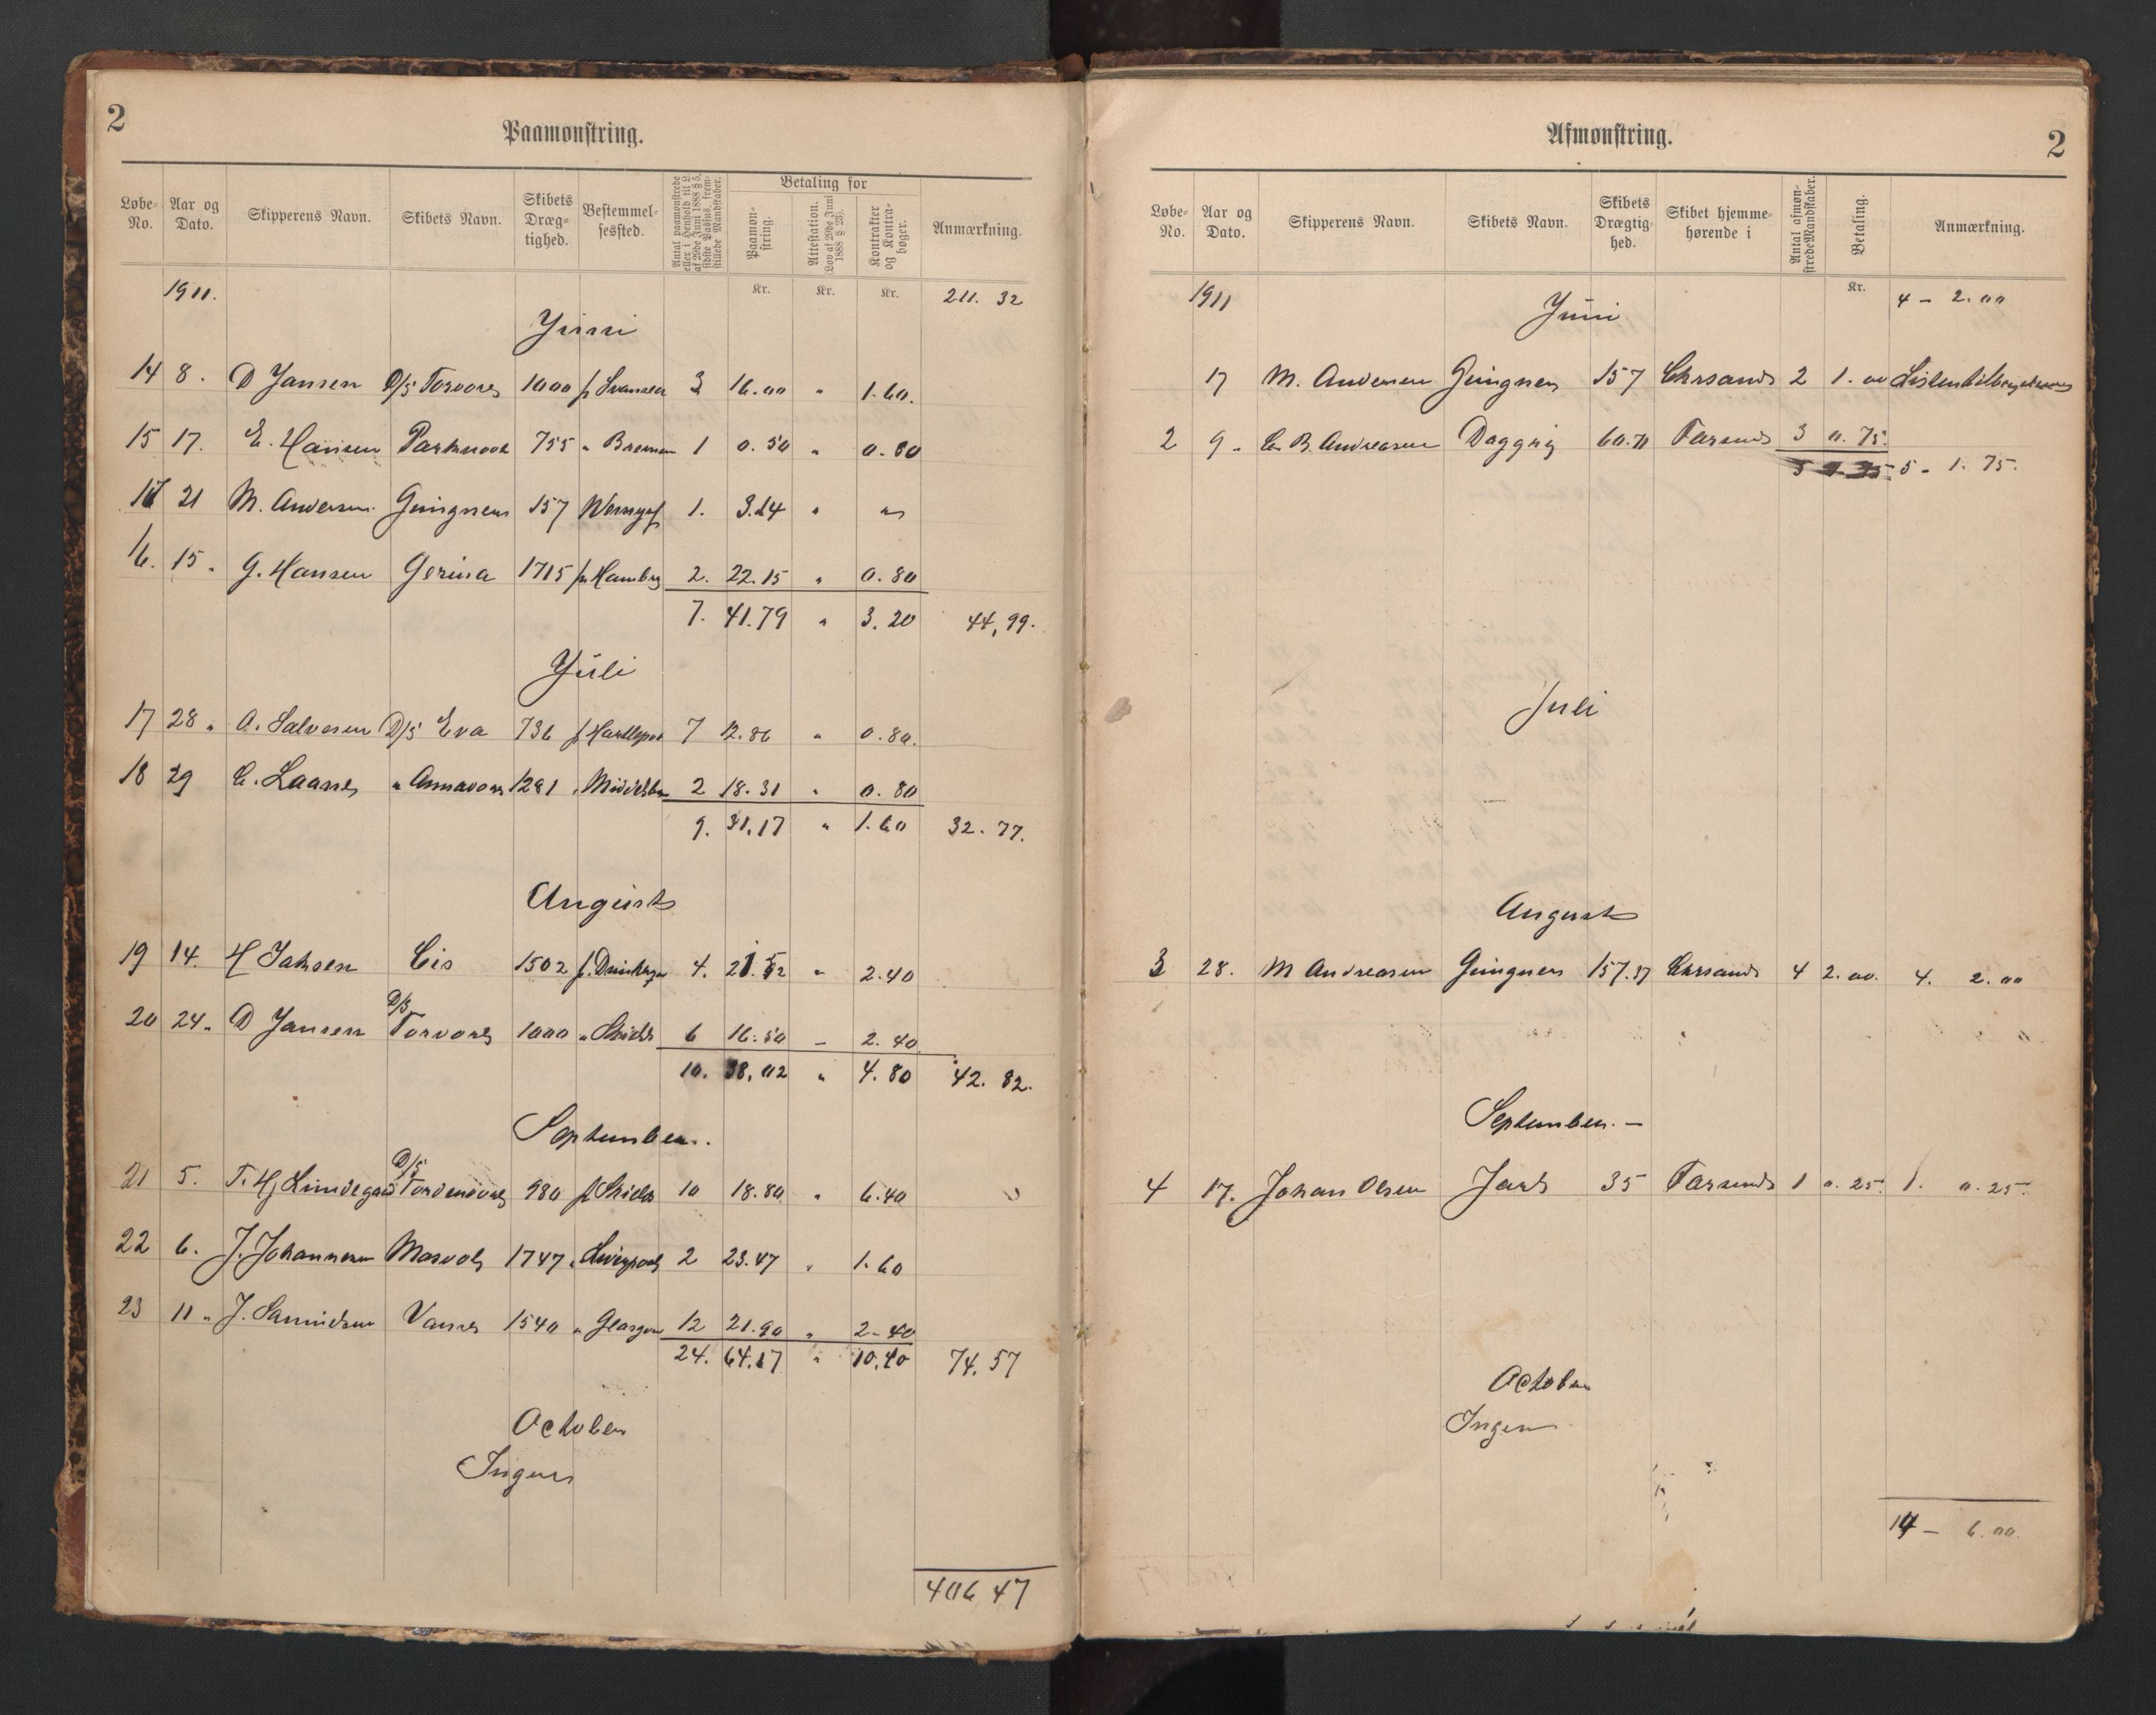 2
Paamønstring.
Løbe-No. Aar og Dato. Skipperens Navn. Skibets Navn. Skibets Dræg-tighed. Bestemmel-sessted. Antal paamønstrede eller i Henhold til L. af 29de Juni 1888 § 5, sidste Passus, frem-stillede Mandskaber. Betaling for Paamøn-string. Attestation. Lov af 29de Juni 1888 § 23). Kontrakter og Kontra-bøger. Anmærkning.
1911. Kr. Kr. Kr. 211. 32
Juni
14 8. D Jansen D/S Torvore 1000 f Svansea 3 16.00 " 1.60.
15 17. E. Hansen 755 " Bremen 1 0.50 " 0.80
21 M. Andersen Gungner 157 1. 3.14 "
16. 15. G. Hansen Gerina 1715 f Hambrg 2. 22.15 " 0.80
7. 41.79 " 3.20 44,99.
Juli
17 28 " A. Salvesen D/S Eva 736 f Hartlepool 7 12.86 " 0.80.
18 29 C. Laane " 1281 " Middelsbro 2 18.31 " 0.80
9. 31,17 " 1.60 32.77.
August
19 14. H Jahsen Cis 1502 f. 4. 21.52 " 2.40
20 24 " D Jansen D/S Torvore 1000 " Shields 6 16.50 – 2.40
10. 38,02 " 4.80 42.82.
September.
21 5. T. Hj Lindegaard D/S Tordenvore 980 f Shields 10 18.80 " 6.40
22 6. J. Johannesen 1747 " Liverpool 2 23.47 " 1.60
23 11 " J. Samuelsen Vanse 1540 " Glasgow 12 21.90 " 2.40
24. 64.17 " 10.40 74.57
October
Ingen
406 47
2
Afmønstring.
Løbe-No. Aar og Dato. Skipperens Navn. Skibets Navn. Skibets Drægtig-hed. Skibet hjemme-hørende i Antal afmøn-strede Mandskaber. Betaling. Anmærkning.
1911 Kr. 4 – 2.00
Juni
17 M. Andersen Gungner 157 Chrsand 2 1.00
2 9. C. B. Andreasen Daggry 60.71 Farsund 3 0.75.
5 – 1.75.
Juli
–
August
3 28. M Andreasen Gungner 157.37 Chrsand 4 2.00. 4. 2.00
September. –
4 17. Johan Olsen Jarl 35 Farsund 1 0.25. 1. 0.25.
October
Ingen
14 – 6.00